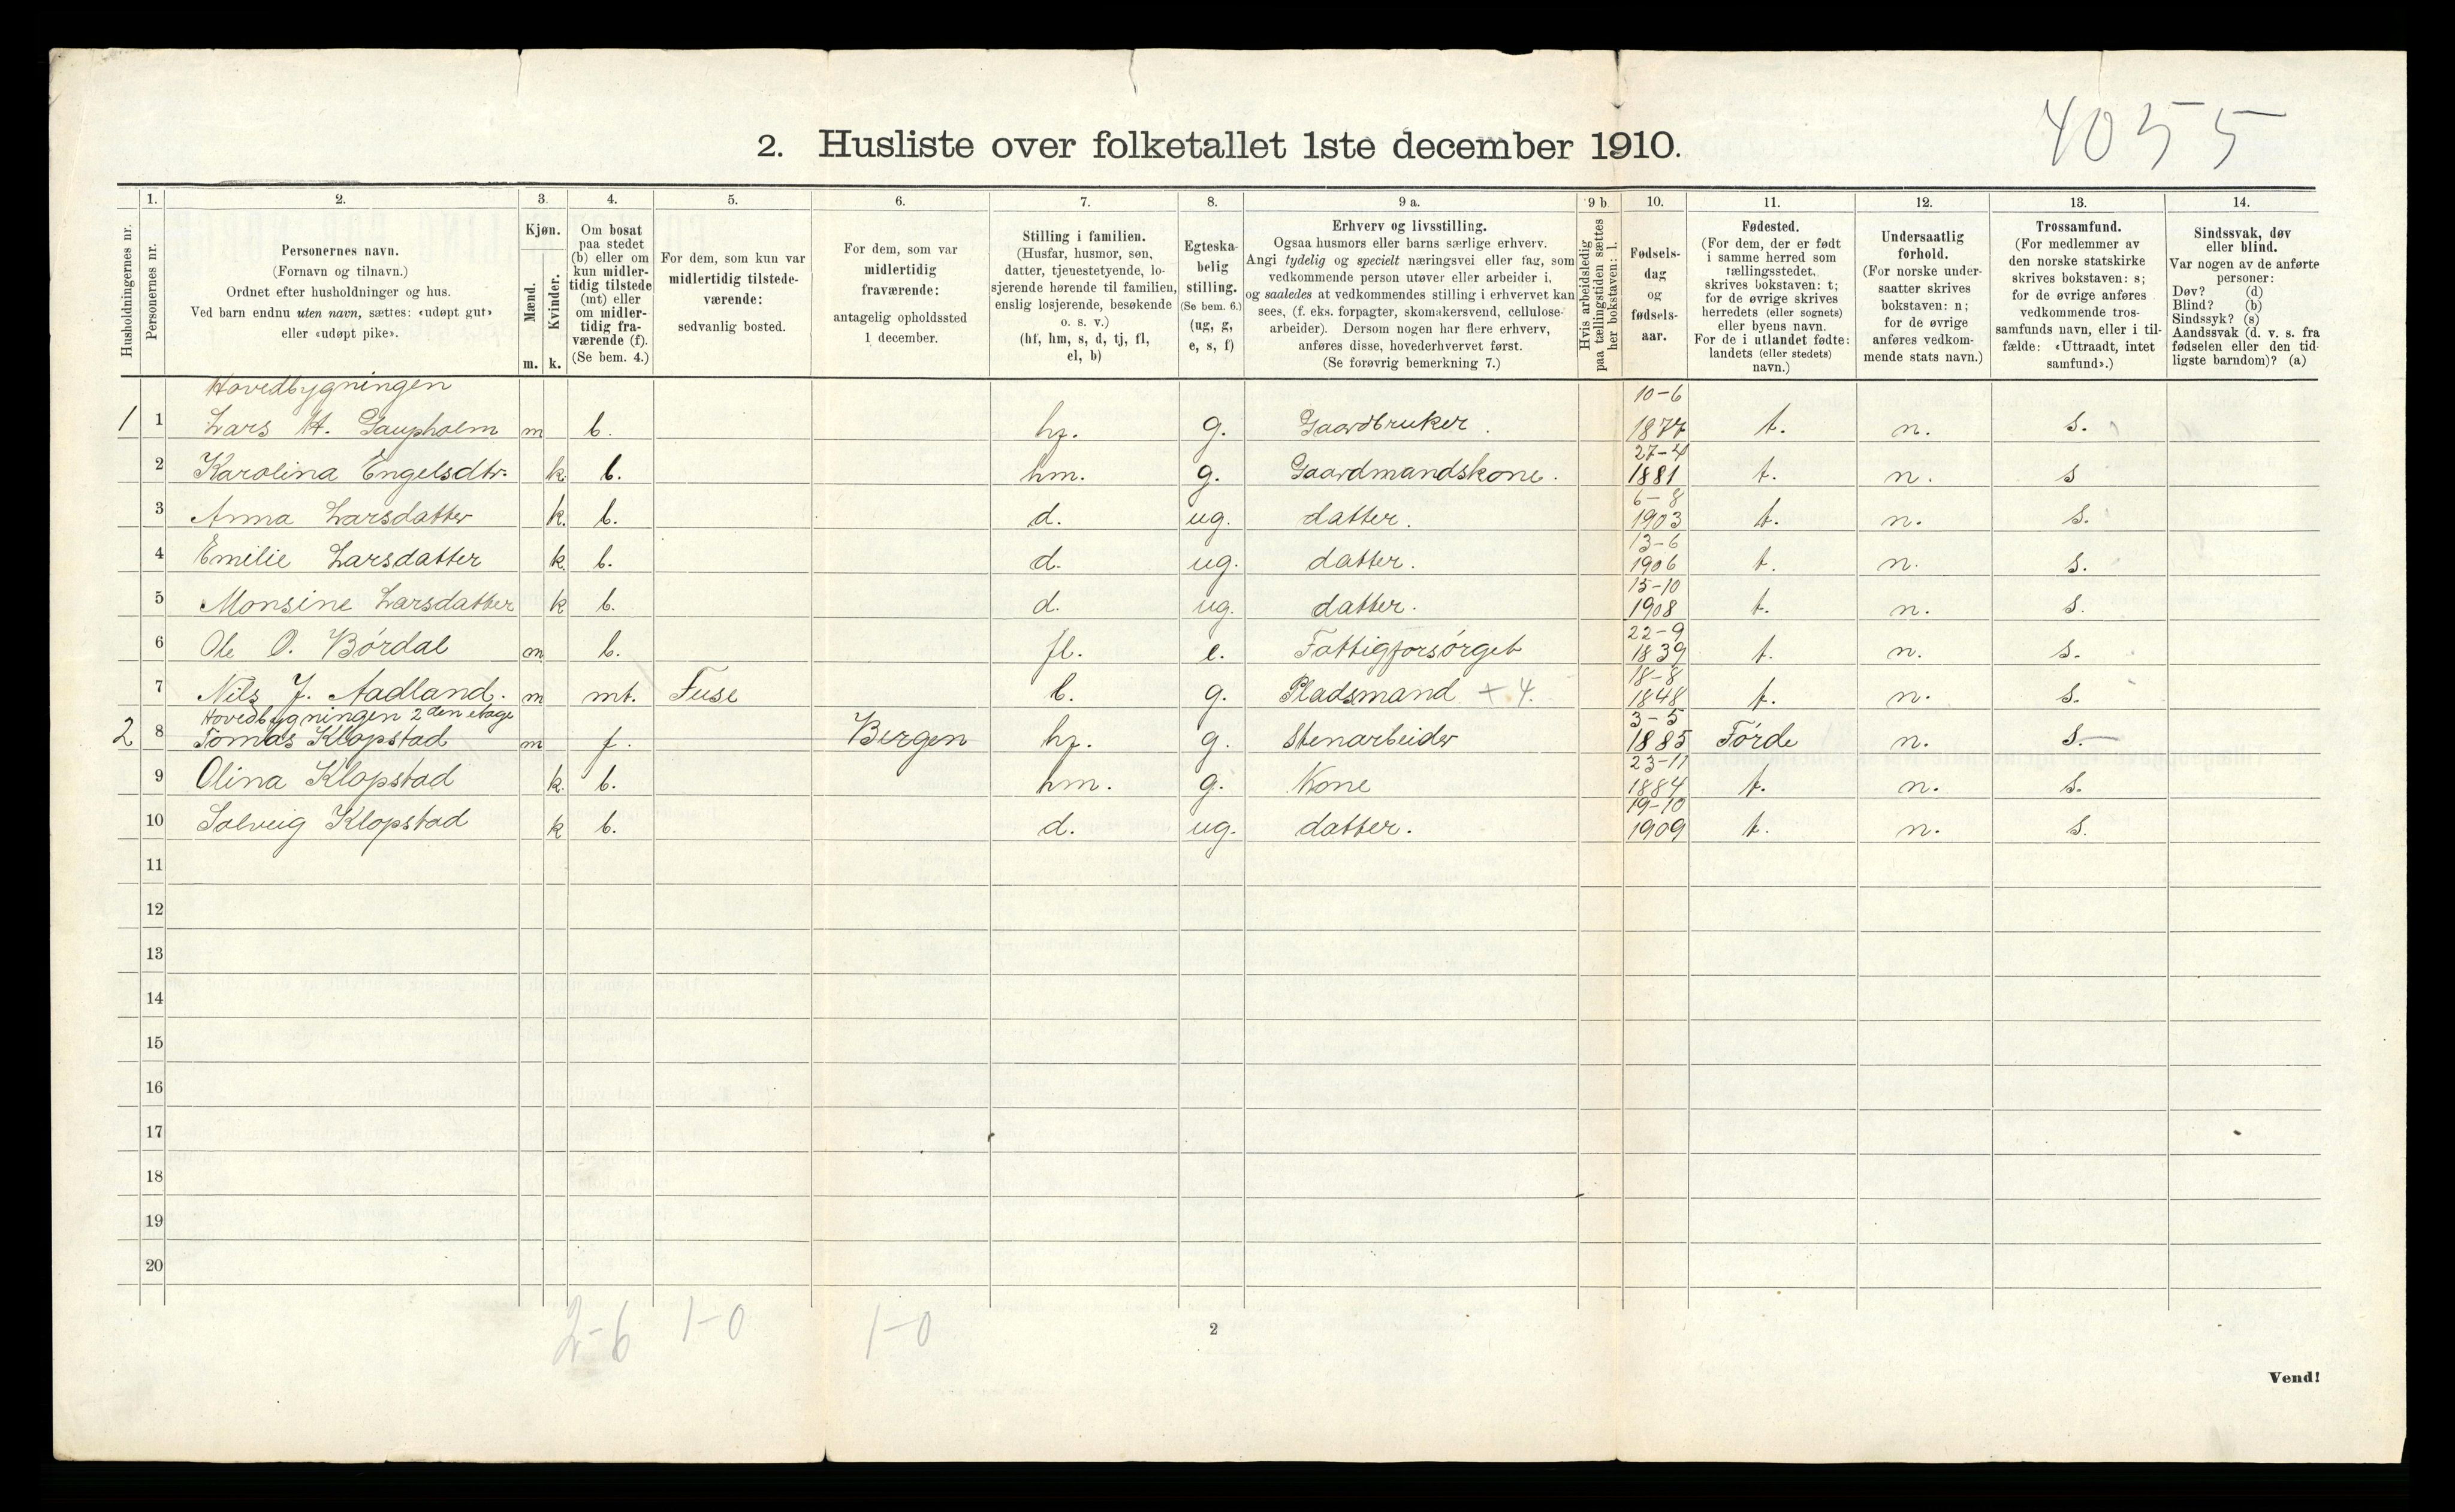 4055
2. Husliste over folketallet 1ste december 1910.
Husholdningernes nr.
1. Personernes nr.
2. Personernes navn. (Fornavn og tilnavn.) Ordnet efter husholdninger og hus. Ved barn endnu uten navn, sættes: «udøpt gut» eller «udøpt pike».
3. Kjøn. Mænd. m. Kvinder. k.
4. Om bosat paa stedet (b) eller om kun midlertidig tilstede (mt) eller om midlertidig fraværende (f). (Se bem. 4.)
5. For dem, som kun var midlertidig tilstedeværende: sedvanlig bosted.
6. For dem, som var midlertidig fraværende: antagelig opholdssted 1 december.
7. Stilling i familien. (Husfar, husmor, søn, datter, tjenestetyende, losjerende hørende til familien, enslig losjerende, besøkende o. s. v.) (hf, hm, s, d, tj, fl, el, b)
8. Egteskabelig stilling. (Se bem. 6.) (ug, g, e, s, f)
9 a. Erhverv og livsstilling. Ogsaa husmors eller barns særlige erhverv. Angi tydelig og specielt næringsvei eller fag, som vedkommende person utøver eller arbeider i, og saaledes at vedkommendes stilling i erhvervet kan sees, (f. eks. forpagter, skomakersvend, cellulosearbeider). Dersom nogen har flere erhverv, anføres disse, hovederhvervet først. (Se forøvrig bemerkning 7.)
9 b Hvis arbeidsledig paa tællingstiden sættes her bokstaven: l.
10. Fødselsdag og fødselsaar.
11. Fødested. (For dem, der er født i samme herred som tællingsstedet, skrives bokstaven: t; for de øvrige skrives herredets (eller sognets) eller byens navn. For de i utlandet fødte: landets (eller stedets) navn.)
12. Undersaatlig forhold. (For norske undersaatter skrives bokstaven: n; for de øvrige anføres vedkommende stats navn.)
13. Trossamfund. (For medlemmer av den norske statskirke skrives bokstaven: s; for de øvrige anføres vedkommende trossamfunds navn, eller i tilfælde: «Uttraadt, intet samfund».)
14. Sindssvak, døv eller blind. Var nogen av de anførte personer: Døv? (d) Blind? (b) Sindssyk? (s) Aandssvak (d. v. s. fra fødselen eller den tidligste barndom)? (a)
Hovedbygningen
1 1 Lars H. Gaupholm m b. hf. g. Gaardbruker. 10-6 1877 t. n. s.
2 Karolina Engelsdtr. k. b. hm. g. Gaardmandskone. 27-4 1881 t. n. s
3 Anna Larsdatter k. b. d. ug. datter. 6-8 1903 t. n. s.
4 Emilie Larsdatter k. b. d. ug. datter. 13-6 1906 t. n. s.
5 Monsine Larsdatter k b. d. ug. datter. 15-10 1908 t. n. s.
6 Ole O. Bórdal m b. fl. e. Fattigforsórget 22-9 1839 t. n. s.
7 Nils J. Aadland. m mt. Fuse b. g. Pladsmand + 4. 18-8 1848 t. n. s.
Hovedbygningen 2den etage
2 8 Tomas Klopstad m f. Bergen hf. g. Stenarbeider 3-5 1885 Fórde n. s.
9 Olina Klopstad k. b. hm. g. Kone 23-11 1884 t. n. s.
10 Solveig Klopstad k b. d. ug. datter. 19-10 1909 t. n. s.
11
12
13
14
15
16
17
18
19
20
2-6 1-0 1-0
2
Vend!